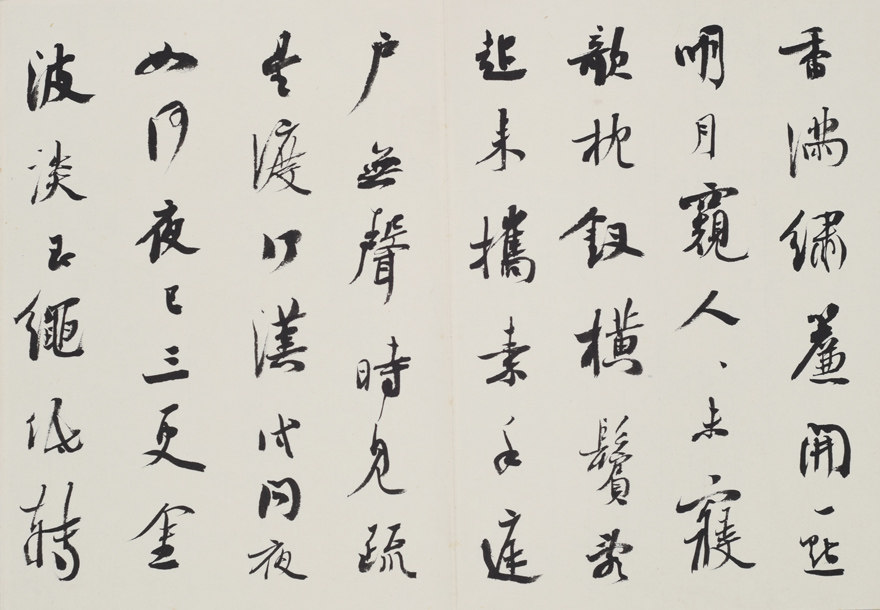 香滿繡簾開一點
明月窺人、未寢
欹枕釵橫鬢亂
起来攜素手庭
户無聲時見疏
星渡河漢試問夜
如何夜已三更金
波淡玉繩低轉